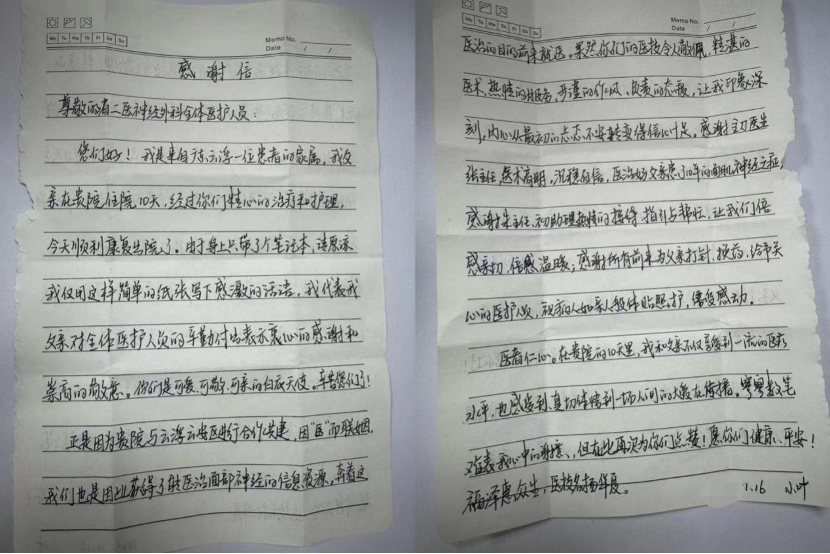 Memo No.
Mo Tu We Th Fr Sa Su
Date / /
感谢信
尊敬的省二医神经外科全体医护人员：
您们好！我是来自广东云浮一位患者的家属，我父
亲在贵院住院10天，经过你们精心的治疗和护理，
今天顺利康复出院了。由于身上只带了个笔记本，请原谅
我仅用这样简单的纸张写下感激的话语，我代表我
父亲对全体医护人员的辛勤付出表示衷心的感谢和
崇高的敬意。你们是可爱、可敬、可亲的白衣天使。辛苦您们了！
正是因为贵院与云浮云安区进行合作共建，因“医”而联姻，
我们也是因此获得了转医治面部神经的信息资源，奔着这
Memo No.
Mo Tu We Th Fr Sa Su
Date / /
医治的目的前来就医。果然你们的医技令人敬佩，精湛的
医术、热情的服务、严谨的作风、负责的态度，让我印象深
刻，内心从最初的忐忑不安转变得信心十足。感谢主刀医生
张主任，医术高明，沉稳自信，医治好父亲患了10年的面肌神经之症，
感谢朱主任、邓助理热情的接待、指引与帮忙，让我们倍
感亲切，倍感温暖；感谢所有前来为父亲打针、换药、给予关
心的医护人员，视病人如亲人般体贴照护，倍受感动。
医者仁心。在贵院的10天里，我和父亲不仅领略到一流的医疗
水平，也感受到真切体会到一场人间的大爱在传播。寥寥数笔
难表我心中的谢意，但在此再次为你们点赞！愿你们健康、平安！
福泽惠众生，医技名扬华夏。
1.16 小叶